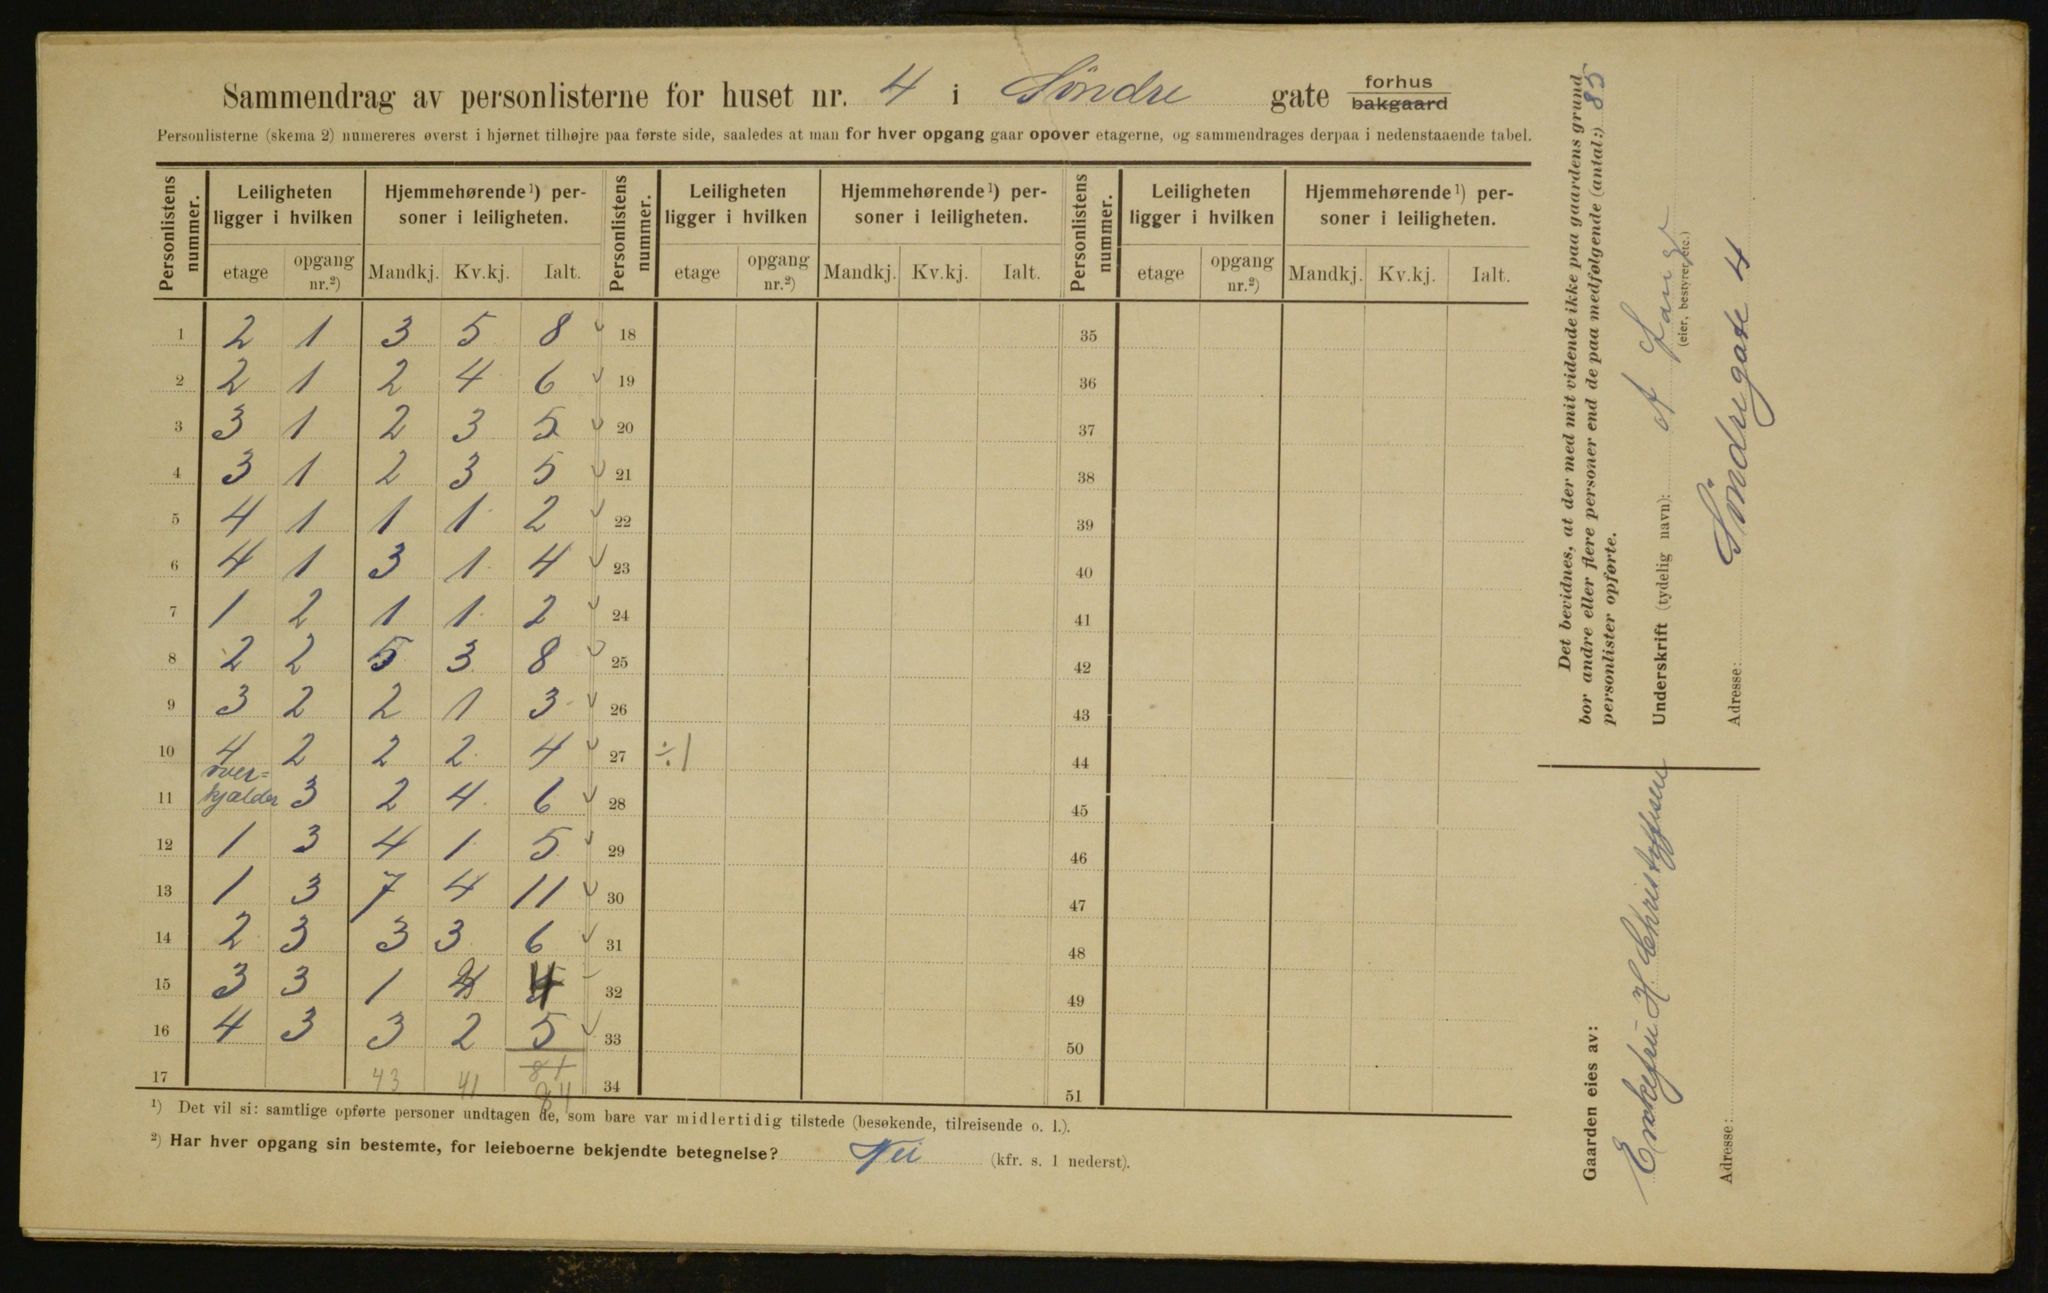 Sammendrag av personlisterne for huset nr. 4 i Søndre gate forhus bakgaard
Personlisterne (skema 2) numereres øverst i hjørnet tilhøjre paa første side, saaledes at man for hver opgang gaar opover etagerne, og sammendrages derpaa i nedenstaaende tabel.
Personlistens nummer. Leiligheten ligger i hvilken Hjemmehørende¹) personer i leiligheten. Personlistens nummer. Leiligheten ligger i hvilken Hjemmehørende¹) personer i leiligheten. Personlistens nummer. Leiligheten ligger i hvilken Hjemmehørende¹) personer i leiligheten.
etage opgang nr.²) Mandkj. Kv.kj. Ialt. etage opgang nr.²) Mandkj. Kv.kj. Ialt. etage opgang nr.²) Mandkj. Kv.kj. Ialt.
1 2 1 3 5 8 18 35
2 2 1 2 4 6 19 36
3 3 1 2 3 5 20 37
4 3 1 2 3 5 21 38
5 4 1 1 1 2 22 39
6 4 1 3 1 4 23 40
7 1 2 1 1 2 24 41
8 2 2 5 3 8 25 42
9 3 2 2 1 3 26 43
10 4 2 2 2 4 27 ÷1 44
11 over=kjælder 3 2 4 6 28 45
12 1 3 4 1 5 29 46
13 1 3 7 4 11 30 47
14 2 3 3 3 6 31 48
15 3 3 1 4 32 49
16 4 3 3 2 5 33 50
17 43 41 84 34 51
¹) Det vil si: samtlige opførte personer undtagen de, som bare var midlertidig tilstede (besøkende, tilreisende o. l.).
²) Har hver opgang sin bestemte, for leieboerne bekjendte betegnelse? Nei (kfr. s. 1 nederst).
Det bevidnes, at der med mit vidende ikke paa gaardens grund
bor andre eller flere personer end de paa medfølgende (antal:) 85
personlister opførte.
Underskrift (tydelig navn): A
(eier, bestyrer, etc.)
Adresse: Søndregate 4
Gaarden eies av:
Enkefru H Christoffersen
Adresse: